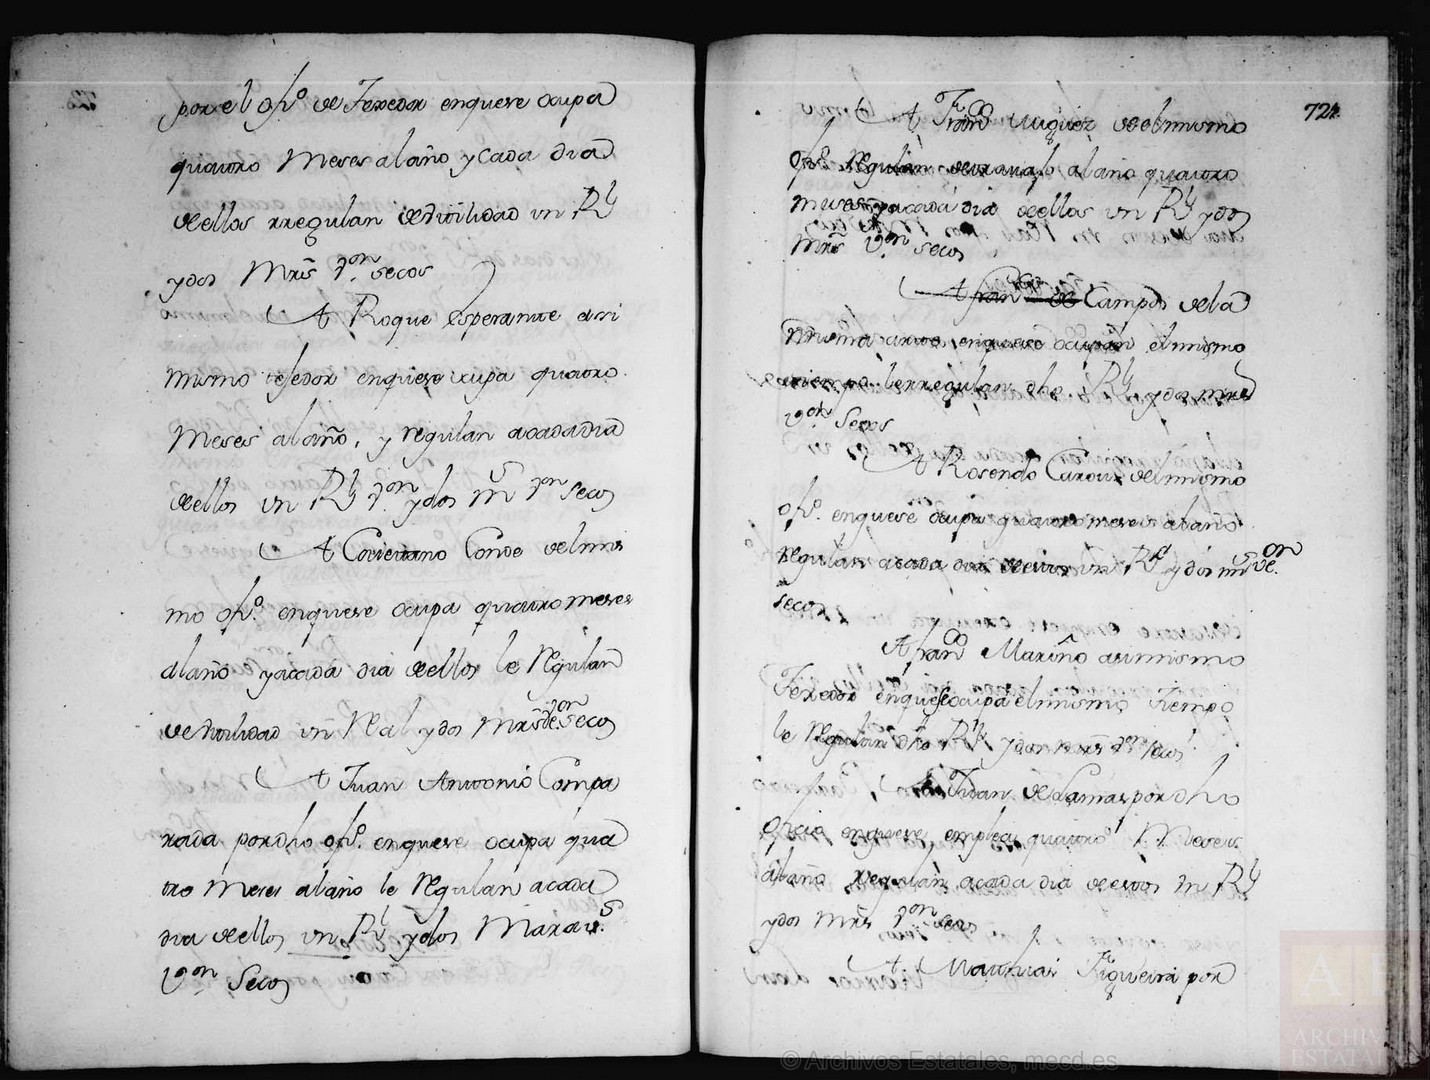 por el ofº de Texedor enquese ocupa
quatro Meses alaño y cada dia
deellos rregulan deutilidad un Rl
ydos Mrs Von secos
A Roque Esperante assi
mismo tejedor enquese ocupa quatro
Meses alaño, y regulan acadadia
deellos un Rl Von ydos ms Von secos
A Cayetano Conde delmis
mo ofº. enquese ocupa quatro meses
alaño yacada dia deellos le regulan
deutilidad un Real ydos Mrs deVon secos
A Juan Antonio Compa
rada pordho ofº. enquese ocupa qua
tro Meses alaño le regulan acada
dia deellos un Rl ydos Maravs.
Von Secos
724.
A Franco Miguez delmismo
ofº regulan detravajo alaño quatro
meses yacada dia deellos un Rl ydos
Mrs Von secos
A franco de Campos dela
misma enquese ocupan elmismo
tiempo lerregulan dho Rl ydos mrs
Von Secos
A Rosendo delmismo
ofº. enquese ocupa quatro meses alaño
regulan acada dia deestos un Rl ydos ms deVon
secos
A franco Mariño asimismo
Texedor enqueseocupa elmismo Tiempo
le regulan dho Rl ydos mrs Von secos
A Juan deLamas por dho
oficio enquese emplea quatro Meses
alaño regulan acada dia deestos un Rl
ydos mrs Von secos
A Mathias Figueira por
© Archivos Estatales, mecd.es
ARCHIV
ESTATA